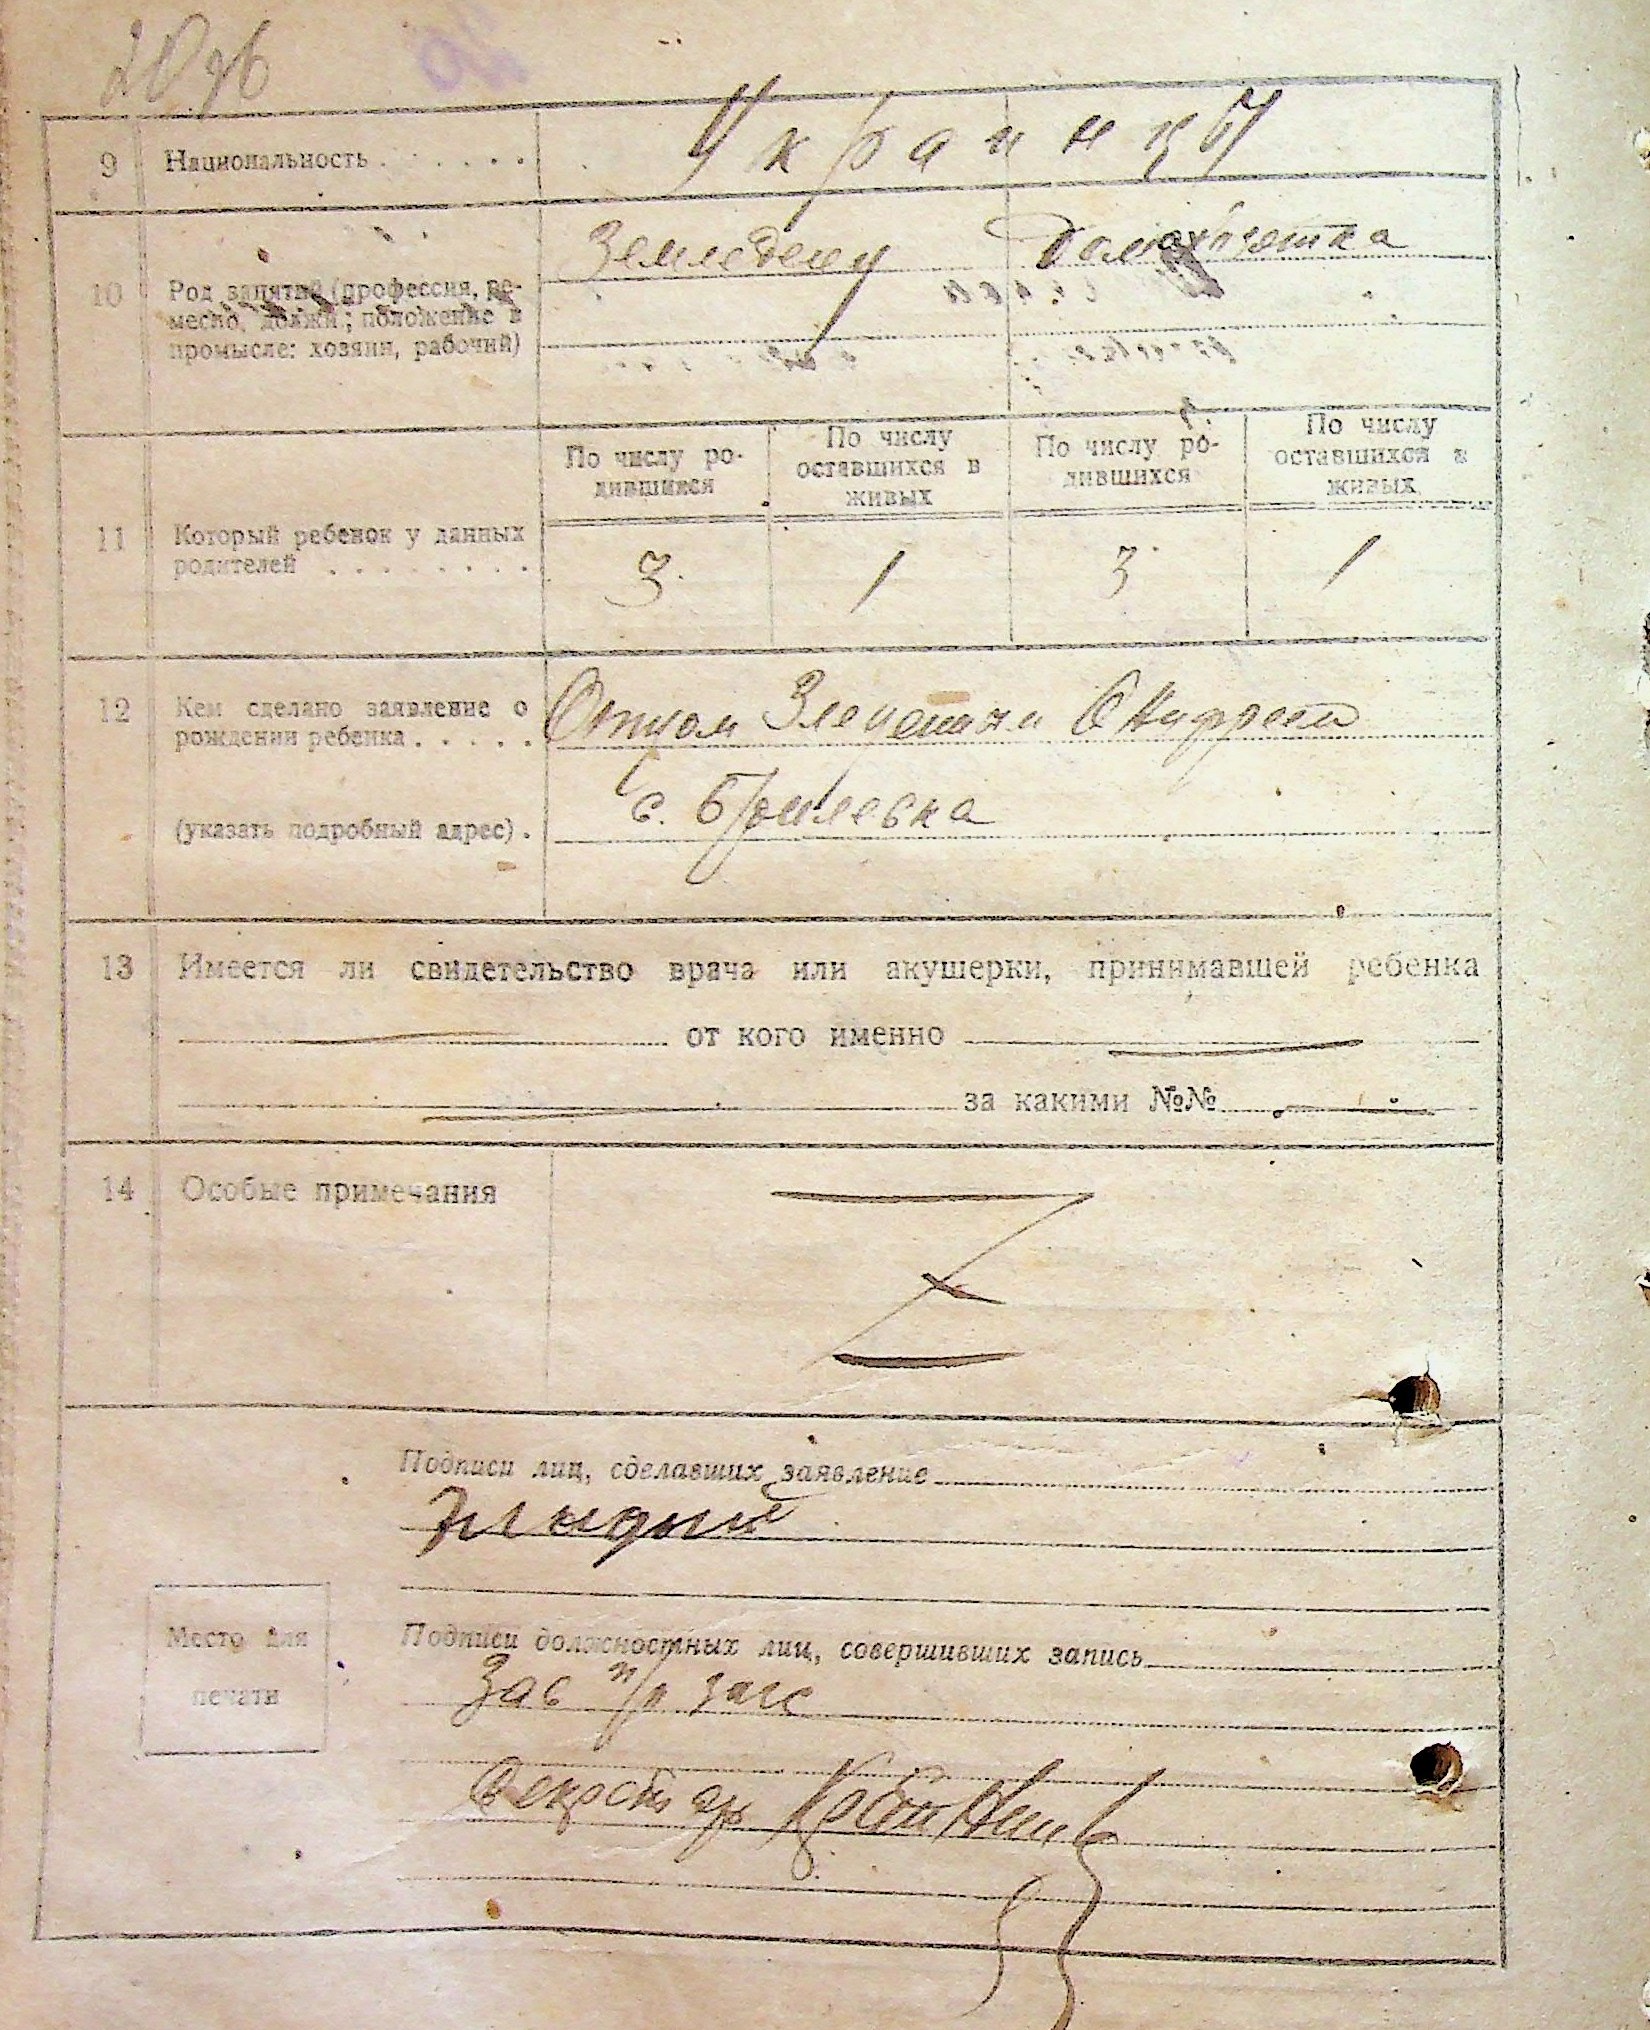 20 об
9 Национальность . . . . . . Украинцы
10 Род занятий (профессия, ре-
месло, должн; положение в
промысле: хозяин, рабочий)
Земледелец Домохозяйка
По числу ро-
дившихся
По числу
оставшихся в
живых
По числу ро-
дившихся
По числу
оставшихся в
живых
11 Который ребенок у данных
родителей . . . . . . . .
3 1 3 1
12 Кем сделано заявление о
рождении ребенка . . . . .
Отцом
(указать подробный адрес) .
с. Брилевка
13 Имеется ли свидетельство врача или акушерки, принимавшей ребенка
от кого именно
за какими №№
14 Особые примечания
Подписи лиц, сделавших заявление
Место для
печати
Подписи должностных лиц, совершивших запись
Зав п/п загс
Секретарь